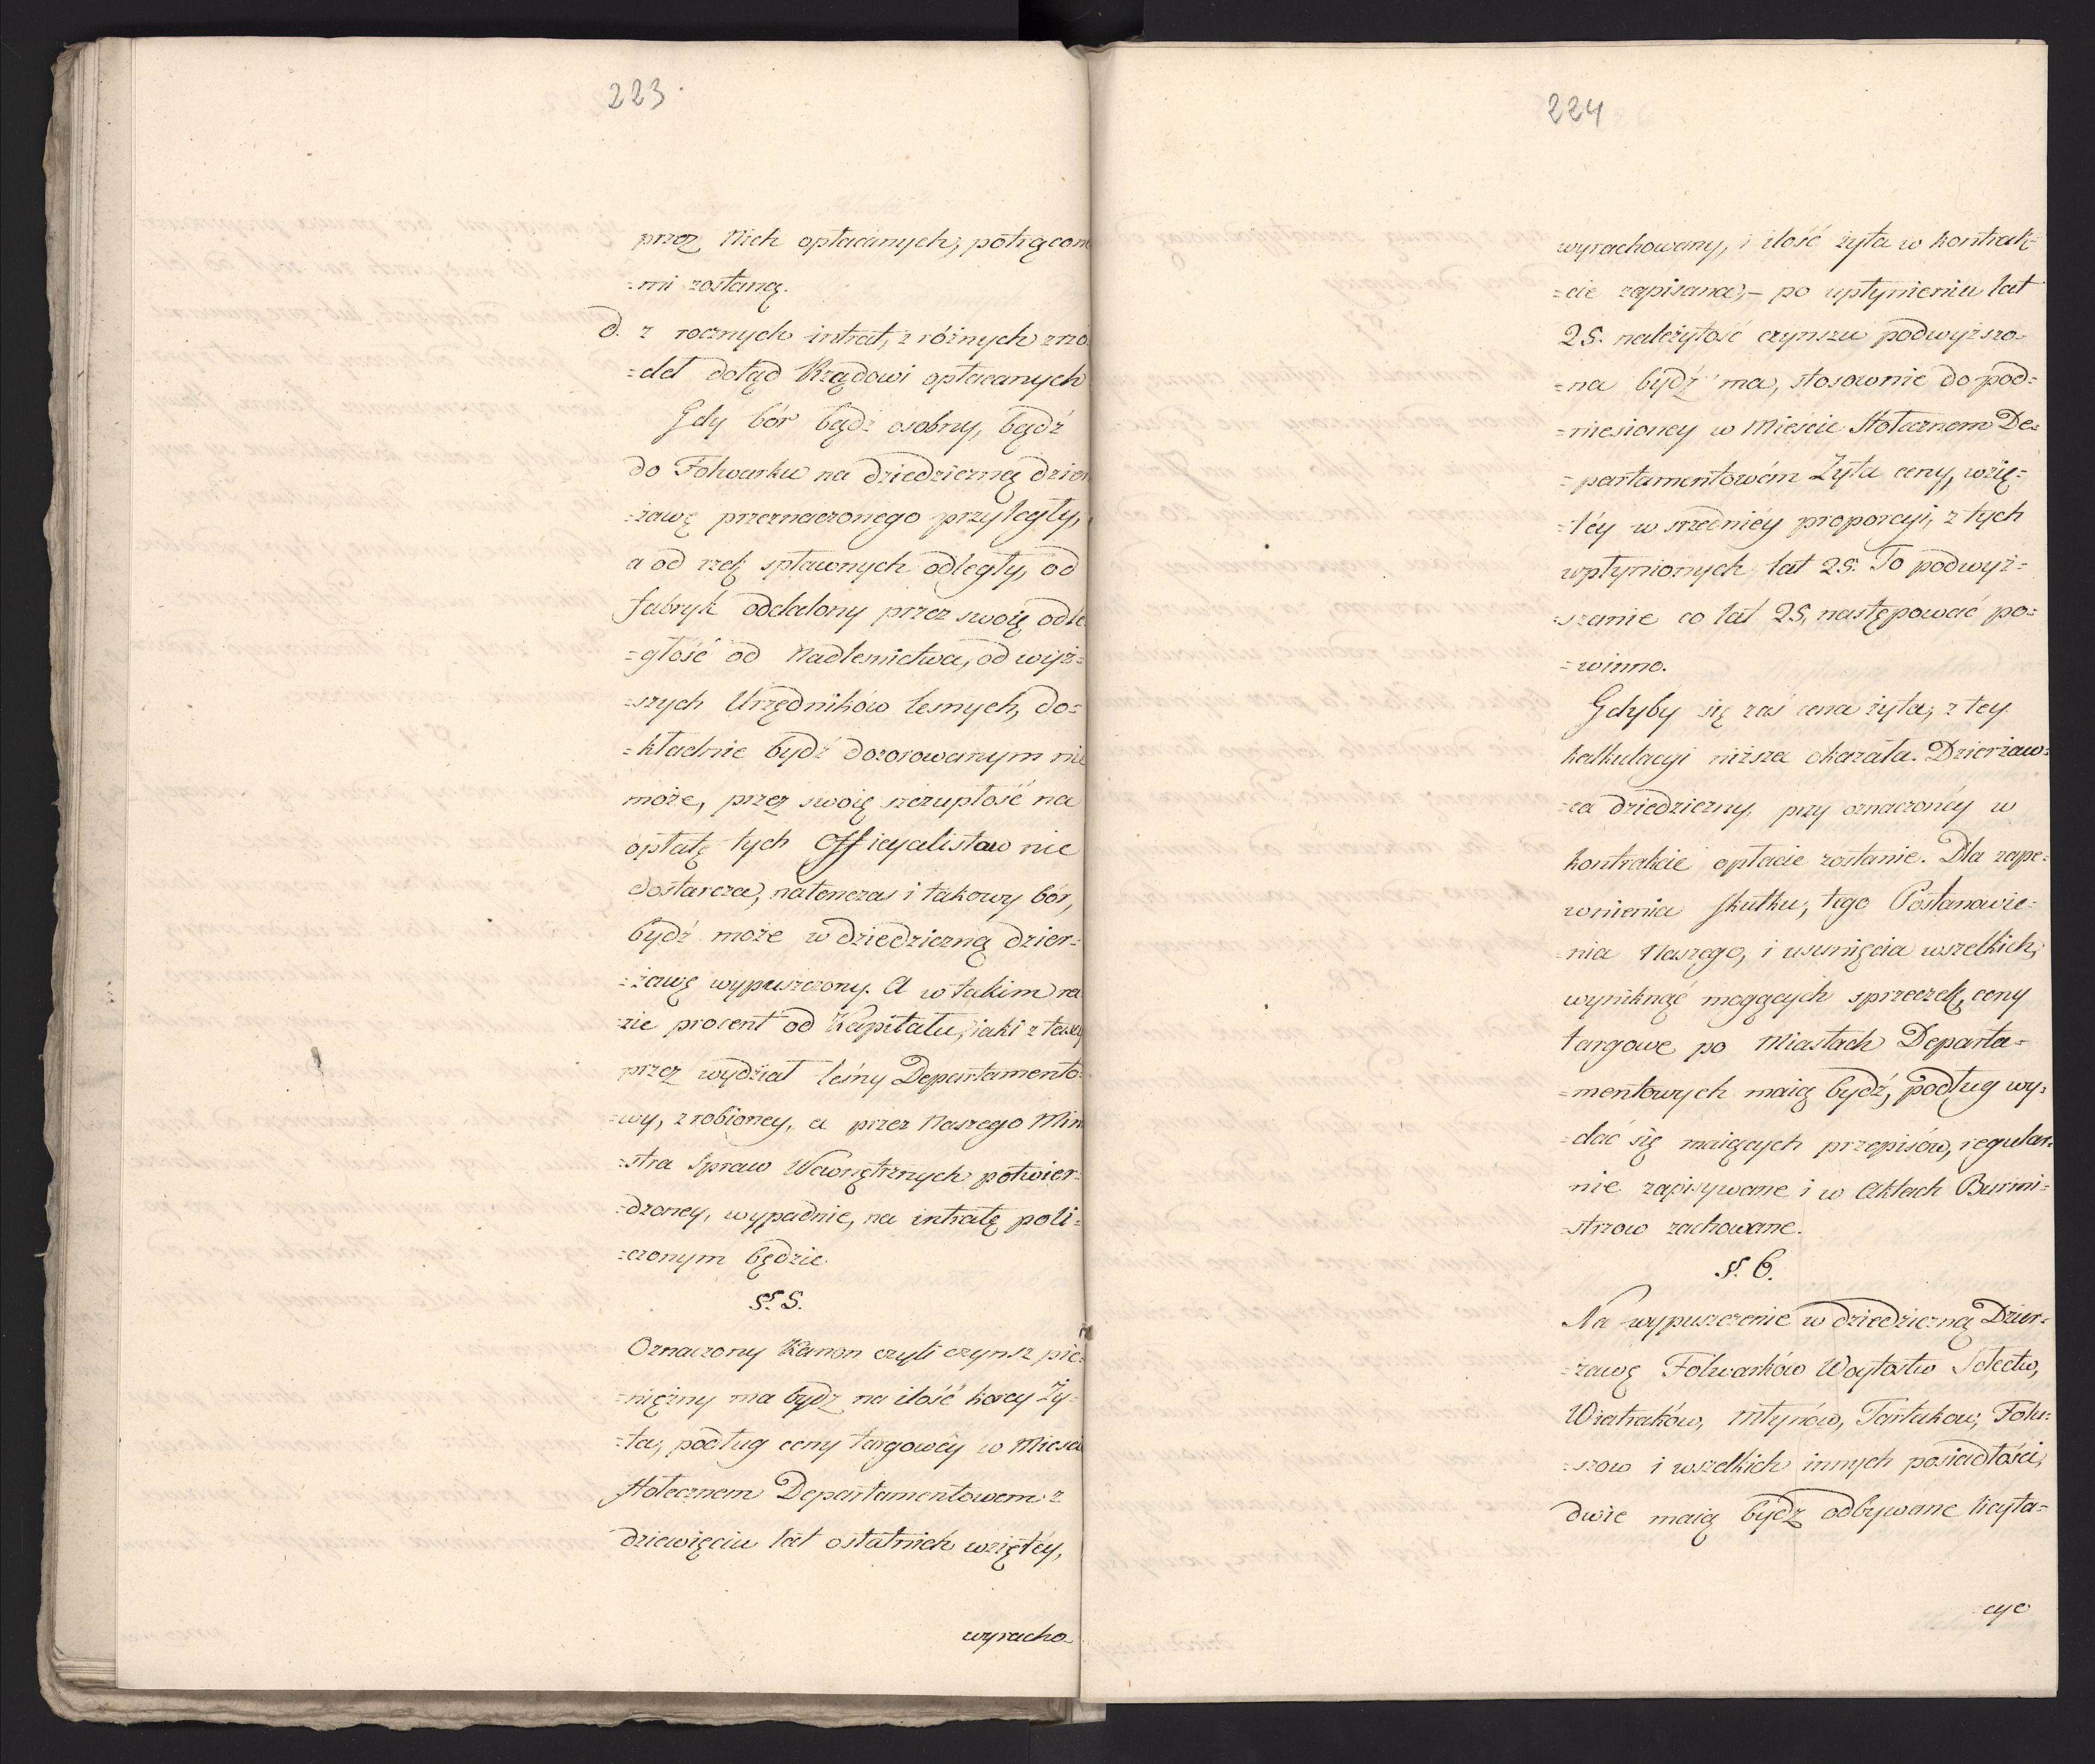 223.
przez Nich opłacanych, potrącone
=mi zostaną.
d. z rocznych intrat, z różnych zrzo
=deł dotąd Rządowi opłacanych
Gdy bór bądź osobny, bądź
do Folwarku na dziedziczną dzier
=żawę przeznaczonego przyległy,
a od rzek spławnych odległy, od
fabryk oddalony przez swoię odle
=głość od Nadleśnictwa, od wyż=
=szych Urzędników leśnych, do=
=kładnie bydź dozorowanym nie
może, przez swoię szczupłość na
opłatę tych Officyalistow nie
dostarcza, natenczas i takowy bór,
bydź może w dziedziczną dzier=
=żawę wypuszczony. A w takim ra
=zie procent od Kapitału, iaki z taxy
przez wydział leśny Departamento=
=wy, zrobioney, a przez Naszego Mini
=stra Spraw Wewnętrznych potwier=
=dzoney, wypadnie, na intratę poli=
=czonym będzie.
§. 5.
Oznaczony Kanon czyli czynsz pie=
=niężny ma bydz na ilość korcy Ży=
=ta, podług ceny targowéy w Mieście
Stołecznem Departamentowem z
dziewięciu lat ostatnich wziętéy,
wyracho=
224
wyrachowany, i ilość żyta w kontrak=
=cie zapisana, – po upłynieniu lat
25. należytość czynszu podwyższo=
=na bydź ma, stosownie do pod=
=niesioney w Mieście Stołecznem De=
=partamentowém Żyta ceny, wzię=
=téy w srzedniéy proporcyi, z tych
wpłynionych lat 25. To podwyż=
=szanie co lat 25, następować po=
=winno.
Gdyby się zaś cena żyta, z tey
kalkulacyi niższa okazała. Dzierżaw=
=ca dziedziczny, przy oznaczonéy w
kontrakcie opłacie zostanie. Dla zape=
wnienia skutku, tego Postanowie=
=nia Naszego, i usunięcia wszelkich,
wyniknąć mogących sprzeczek, ceny
targowe po Miastach Departa=
=mentowych maią bydź, podług wy=
=dać się maiących przepisów, regular=
nie zapisywane i w Aktach Burmi=
=strzow zachowane.
§. 6.
Na wypuszczenie w dziedziczną Dzier=
=żawę Folwarków Woytostw Sołectw,
Wiatraków, Młynów, Tartakow, Folu=
=szow i wszelkich innych posiadłości,
dwie maią bydz odbywane licyta=
=cye